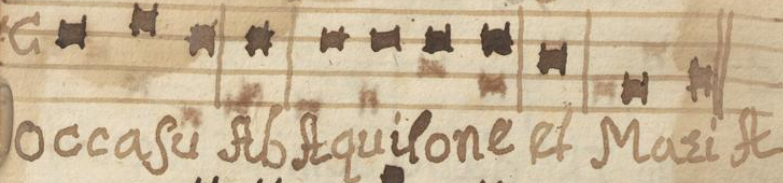 occasu Ab Aquilone et Mari A